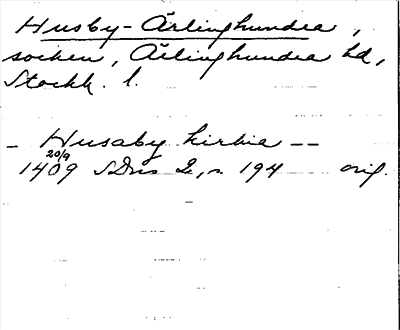 Husby-Ärlinghundra,
socken, Ärlinghundra hd,
Stockh. l.
_ Husaby kirkia __
20/9
1409 SDns 2, n. 194 orig.